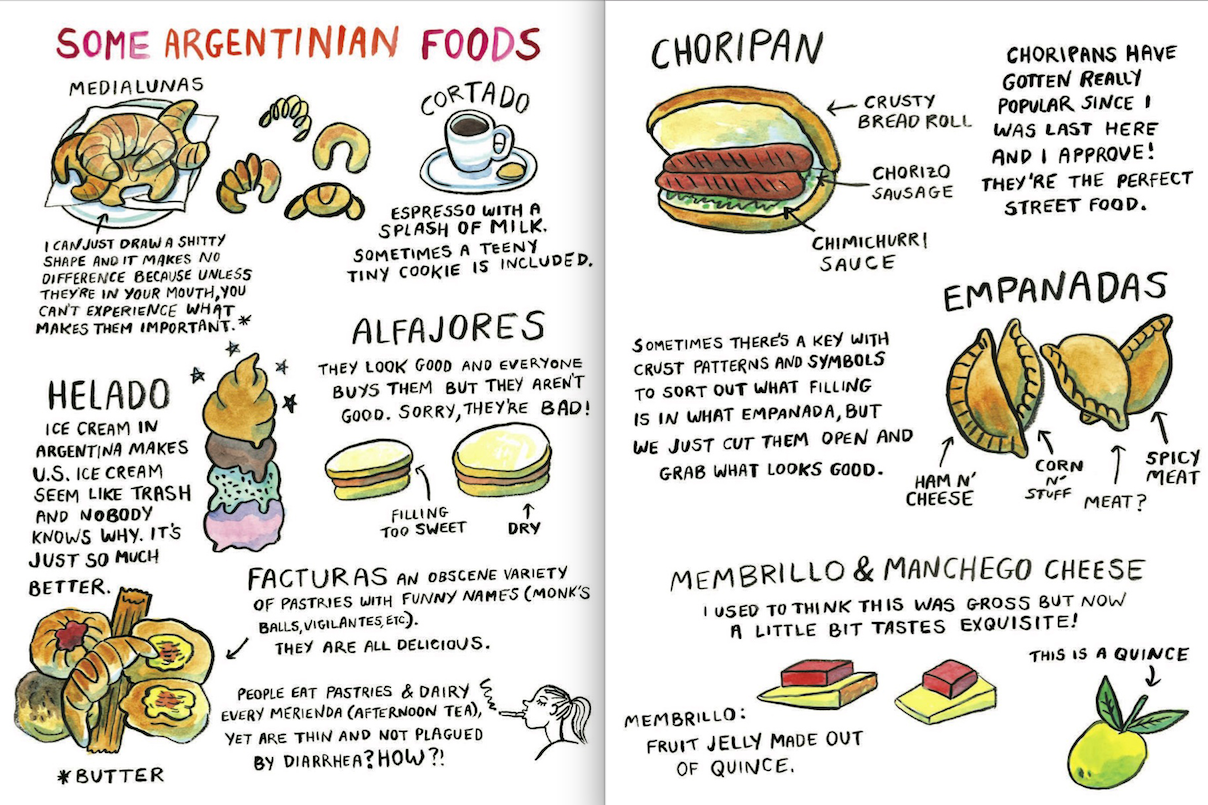 SOME ARGENTINIAN FOODS
MEDIALUNAS
I CAN JUST DRAW A SHITTY
SHAPE AND IT MAKES NO
DIFFERENCE BECAUSE UNLESS
THEY'RE IN YOUR MOUTH, YOU
CAN'T EXPERIENCE WHAT
MAKES THEM IMPORTANT.*
CORTADO
ESPRESSO WITH A
SPLASH OF MILK.
SOMETIMES A TEENY
TINY COOKIE IS INCLUDED.
HELADO
ICE CREAM IN
ARGENTINA MAKES
U.S. ICE CREAM
SEEM LIKE TRASH
AND NOBODY
KNOWS WHY. IT'S
JUST SO MUCH
BETTER.
ALFAJORES
THEY LOOK GOOD AND EVERYONE
BUYS THEM BUT THEY AREN'T
GOOD. SORRY, THEY'RE BAD!
FILLING
TOO SWEET
DRY
FACTURAS AN OBSCENE VARIETY
OF PASTRIES WITH FUNNY NAMES (MONK'S
BALLS, VIGILANTES, ETC).
THEY ARE ALL DELICIOUS.
PEOPLE EAT PASTRIES & DAIRY
EVERY MERIENDA (AFTERNOON TEA),
YET ARE THIN AND NOT PLAGUED
BY DIARRHEA? HOW?!
*BUTTER
CHORIPAN
CRUSTY
BREAD ROLL
CHORIZO
SAUSAGE
CHIMICHURRI
SAUCE
CHORIPANS HAVE
GOTTEN REALLY
POPULAR SINCE I
WAS LAST HERE
AND I APPROVE!
THEY'RE THE PERFECT
STREET FOOD.
EMPANADAS
SOMETIMES THERE'S A KEY WITH
CRUST PATTERNS AND SYMBOLS
TO SORT OUT WHAT FILLING
IS IN WHAT EMPANADA, BUT
WE JUST CUT THEM OPEN AND
GRAB WHAT LOOKS GOOD.
HAM N'
CHEESE
CORN
N'
STUFF
MEAT?
SPICY
MEAT
MEMBRILLO & MANCHEGO CHEESE
I USED TO THINK THIS WAS GROSS BUT NOW
A LITTLE BIT TASTES EXQUISITE!
THIS IS A QUINCE
MEMBRILLO:
FRUIT JELLY MADE OUT
OF QUINCE.